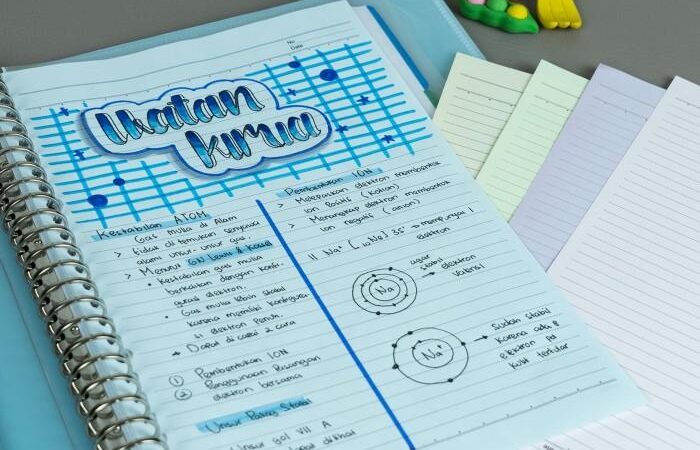 No
Date
Ikatan
kimia
Kestabilan ATOM
Gas mulia di Alam
> tidak di temukan senyawa
alami unsur-unsur gas.
> Menurut GN Lewis & Kossel
• Kestabilan gas mulia
berkaitan dengan konfi-
gurasi elektron.
• Gas mulia lebih stabil
karena memiliki konfigura
si elektron penuh.
→ Dapat di capai 2 cara
① Pembentukan ION
② Penggunaan Pasangan
elektron bersama
Unsur Paling Stabil
Unsur gol VII A
dapat dilihat
Pembentukan ION
> Melepaskan elektron membentuk
ion Positif (Kation)
> Menangkap elektron membentuk
ion negatif (anion)
11 Na⁺ [10Ne] 3s¹ → mempunyai 1
elektron
Na
agar
stabil
→ elektron
valensi
Na⁺
→ sudah stabil
karena ada 8
elektron pd
kulit terluar